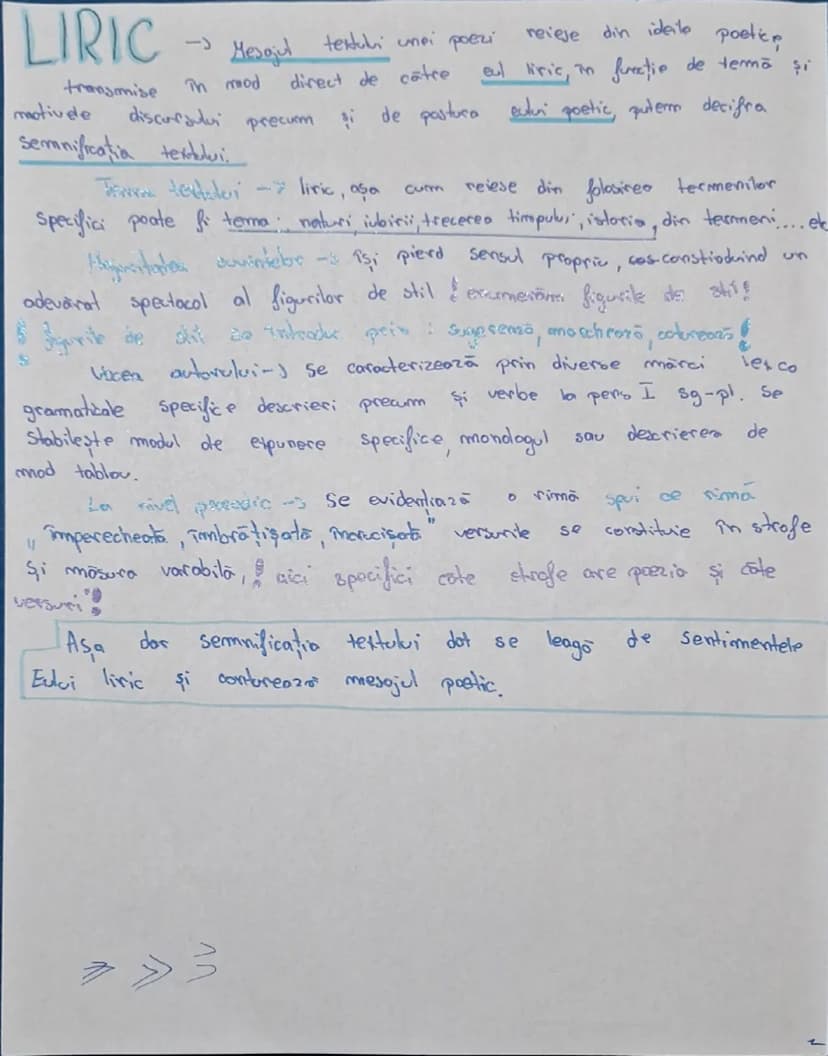 LIRIC -> Mesajul textului unei poezi reiese din ideile poetice,
transmise în mod direct de către eul liric, în funcție de temă și
motivele discursului precum și de postura eului poetic, putem decifra
semnificația textului.
Tema textului -> liric, așa cum reiese din folosirea termenilor
specifici poate fi tema: naturi, iubirii, trecerea timpului, istoria, din termeni.... etc
cuvintelor -> își pierd sensul propriu, constioduind un
adevărat spectacol al figurilor de stil ! enumerăm figurile de stil!
! figurile de stil se introduc prin: sugerează, anochează, conturează!
Vocea autorului -> se caracterizează prin diverse mărci lexico
gramaticale specifice descrieri precum și verbe la pers I sg-pl. Se
stabilește modul de expunere specifice, monologul sau descrierea de
mod tablou.
La nivel prozodic -> se evidențiază o rimă spui ce rimă
„împerecheată, îmbrățișată, încrucișată" versurile se constituie în strofe
și măsura varabilă, ! aici specifici cate strofe are poezia și câte
versuri!
Așa dar semnificația textului dat se leagă de sentimentele
Eului liric și conturează mesajul poetic.